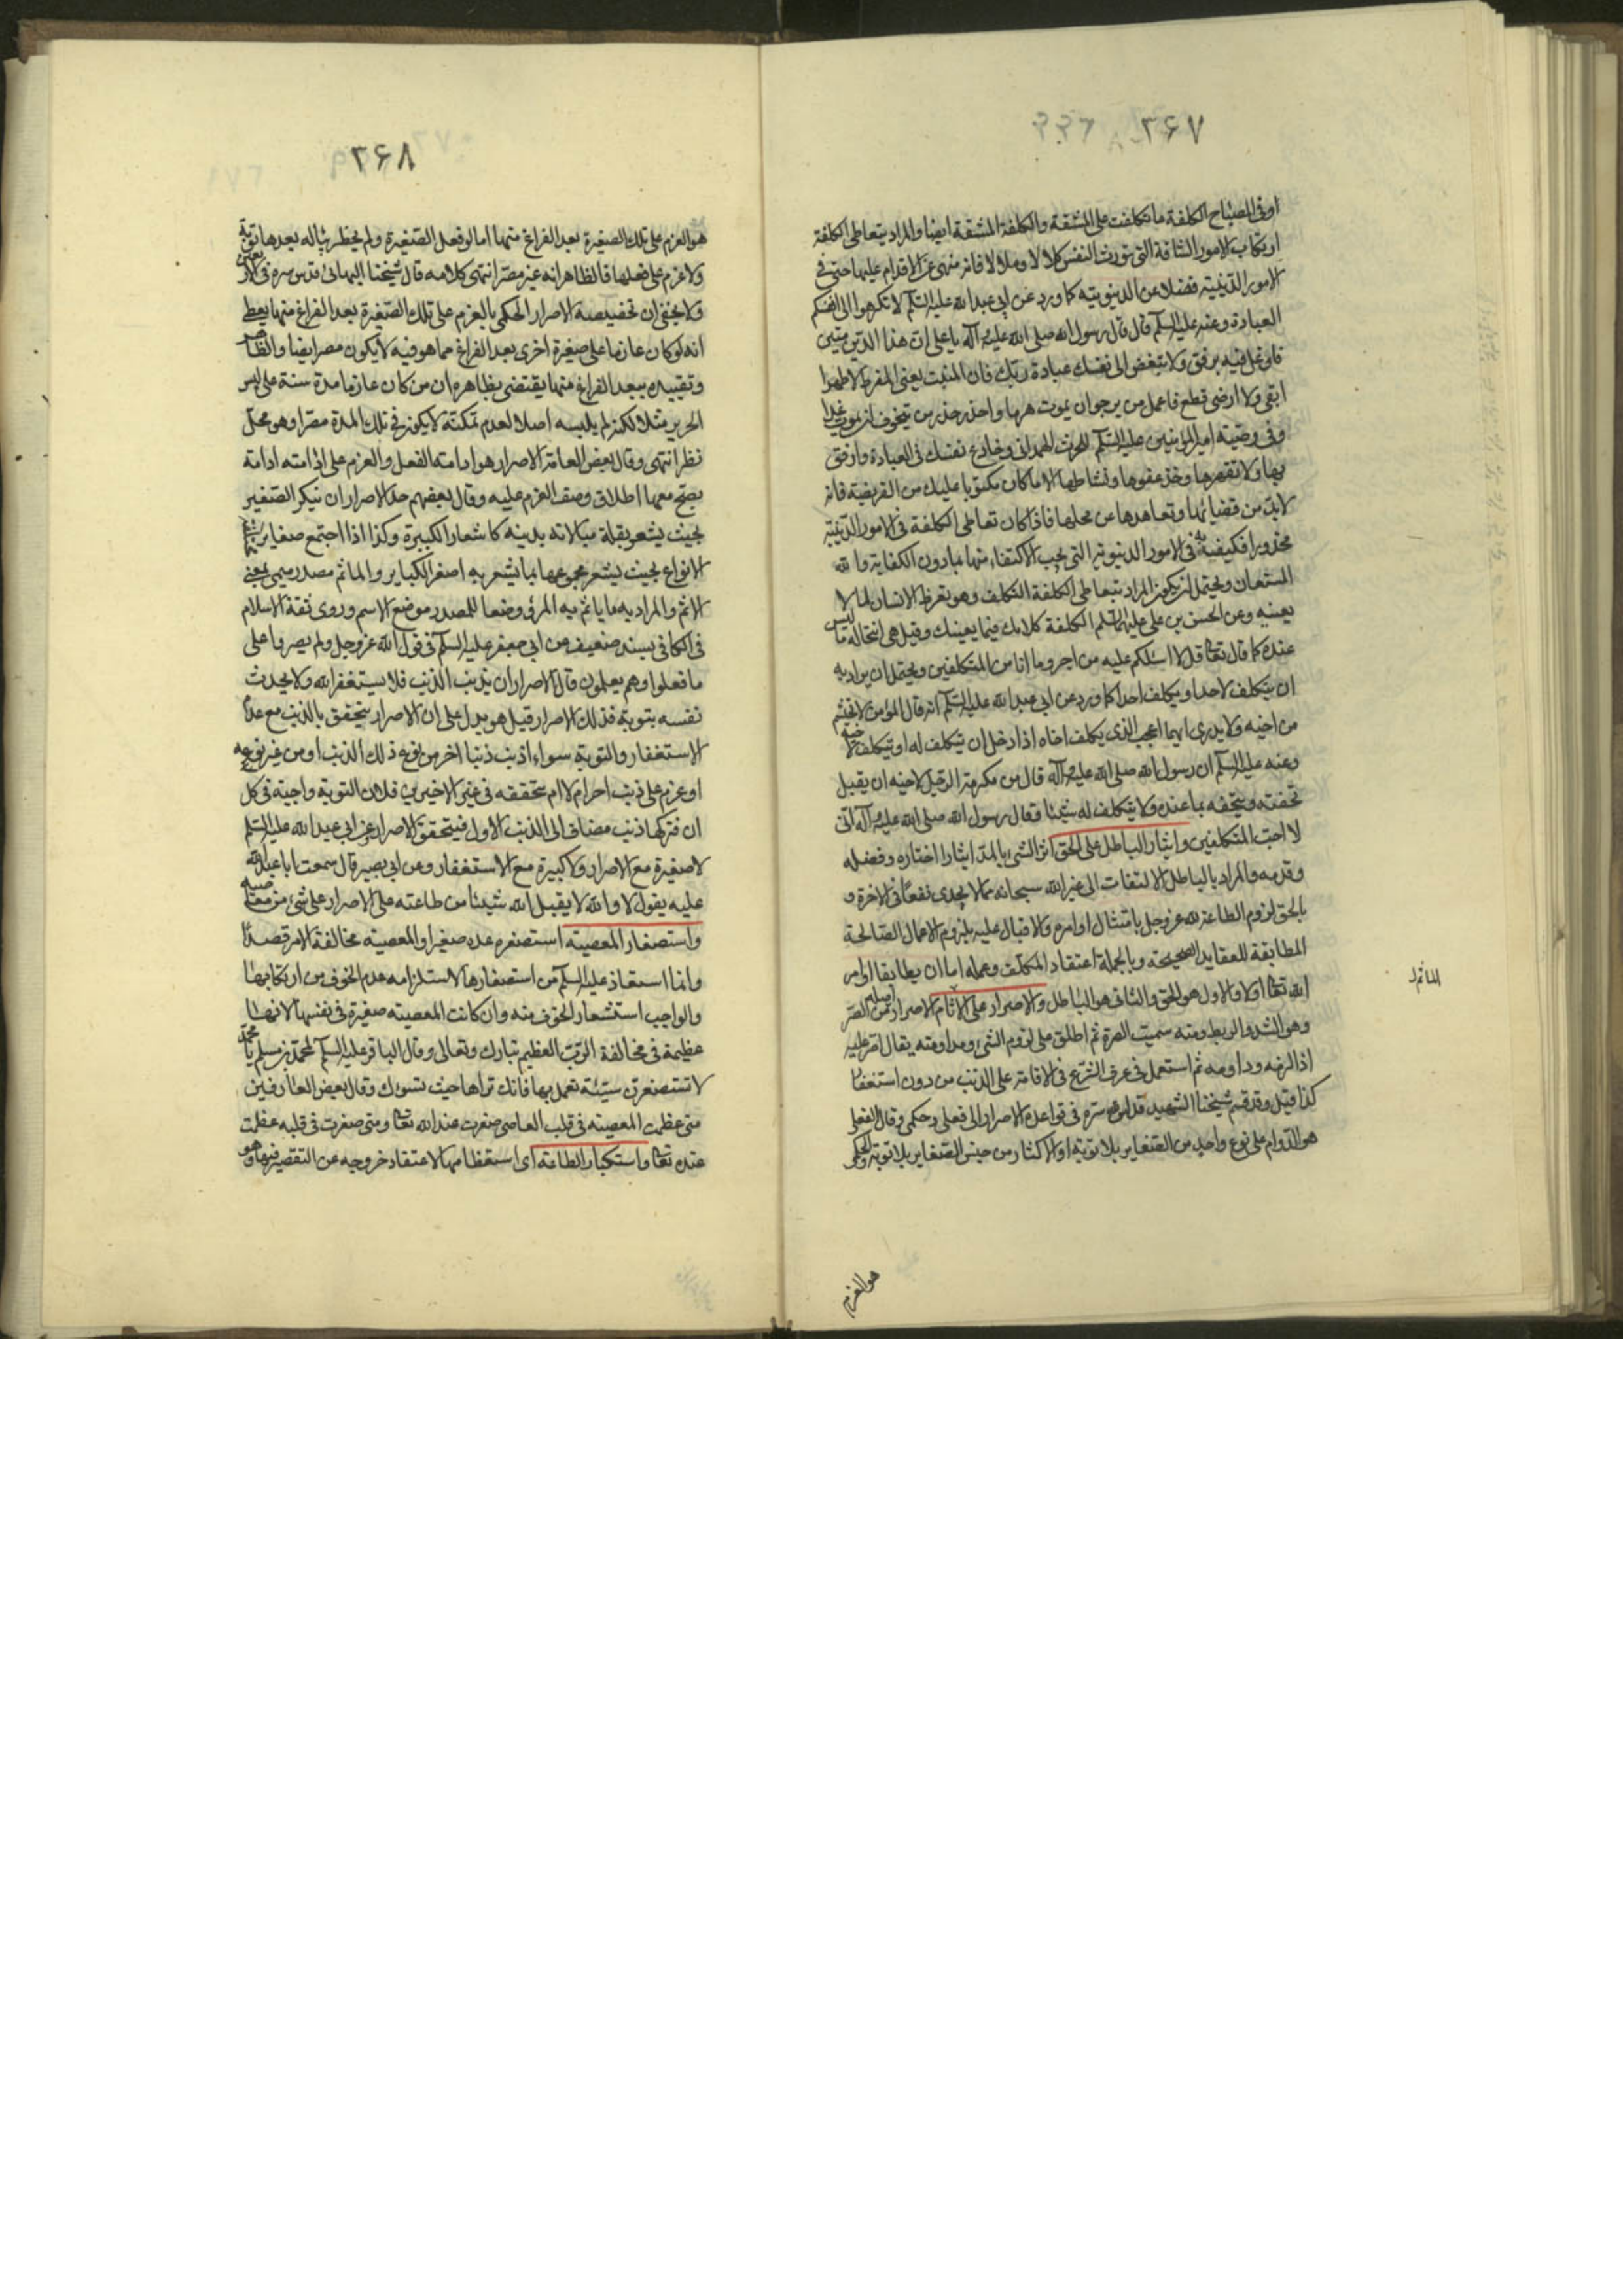 ٢۶٧
او فى المصباح الكلفة ما تكلفت على المشقة والكلفة المشقة ايضا والمراد بتعاطى الكلفة
ارتكاب الامور الشاقة التى تورث النفس كلالا وملالا فانه منهى عن الاقدام عليها حتى فى
الامور الدينية فضلا عن الدنيوية كما ورد عن ابى عبد الله عليه السلم لا تكرهوا الى انفسكم
العبادة وعنه عليه السلم قال قال رسول الله صلى الله عليه وآله يا على ان هذا الدين متين
فاوغل فيه برفق ولا تبغض الى نفسك عبادة ربك فان المنبت يعنى المفرط لا ظهرا
ابقى ولا ارضا قطع فاعمل من يرجو ان يموت هرما واحذر حذر من يتخوف ان يموت غدا
وفى وصية امير المؤمنين عليه السلم للحرث الهمدانى وخادع نفسك فى العبادة وارفق
بها ولا تقهرها وخذ عفوها ونشاطها الا ما كان مكتوبا عليك من الفريضة فانه
لا بد من قضائها وتعاهدها عن محلها فاذا كان تعاطى الكلفة فى الامور الدينية
محذورا فكيف به فى الامور الدنيوية التى يجب الاكتفاء منها بما دون الكفاية والله
المستعان ويحتمل ان يكون المراد بتعاطى الكلفة التكلف وهو تعرض الانسان لما لا
يعنيه وعن الحسن بن على عليهما السلم الكلفة كلامك فيما لا يعنيك وقيل هى انتحاله ما ليس
عنده كما قال تعالى قل لا اسئلكم عليه من اجر وما انا من المتكلفين ويحتمل ان يراد به
ان يتكلف لاحد او يكلف احدا كما ورد عن ابى عبد الله عليه السلم انه قال المؤمن لا يحتشم
من اخيه ولا يدرى ايهما اعجب الذى يكلف اخاه اذا دخل ان يتكلف له او يتكلف لاخيه
وعنه عليه السلم ان رسول الله صلى الله عليه وآله قال من مكرمة الرجل لاخيه ان يقبل
تحفته ويتحفه بما عنده ولا يتكلف له شيئا وقال رسول الله صلى الله عليه وآله انى
لا احب المتكلفين وايثار الباطل على الحق اثر الشئ بالمد ايثارا اختاره وفضله
وقدمه والمراد بالباطل الالتفات الى غير الله سبحانه مما لا يجدى نفعا فى الاخرة و
بالحق لزوم الطاعة لله عز وجل بامتثال اوامره والاقبال عليه بلزوم الاعمال الصالحة
المطابقة للعقايد الصحيحة وبالجملة اعتقاد المكلف وعمله اما ان يطابقا اوامر
الله تعالى اولا والاول هو الحق والثانى هو الباطل والاصرار على الاثام الاصرار اصله من الصر
وهى الشد والربط ومنه سميت الصرة ثم اطلق على لزوم الشئ ومداومته يقال اصر عليه
اذا لزمه وداومه ثم استعمل فى عرف الشرع فى الاقامة على الذنب من دون استغفار
كذا قيل وقد قسم شيخنا الشهيد قدس سره فى قواعده الاصرار الى فعلى وحكمى وقال الفعلى
هو الدوام على نوع واحد من الصغاير بلا توبة او الاكثار من جنس الصغاير بلا توبة والحكمى
المأثم
هو العزم
٢۶٨
هو العزم على تلك الصغيرة بعد الفراغ منها اما لو فعل الصغيرة ولم يخطر بباله بعدها توبة
ولا عزم على فعلها فالظاهر انه غير مصر انتهى كلامه قال شيخنا البهائى قدس سره فى الاربعين
ولا يخفى ان تخصيصه الاصرار الحكمى بالعزم على تلك الصغيرة بعد الفراغ منها يعطى
انه لو كان عازما على صغيرة اخرى بعد الفراغ مما هو فيه لا يكون مصرا ايضا والظاهر
وتقييده ببعد الفراغ منها يقتضى بظاهره ان من كان عازما مدة سنة على لبس
الحرير مثلا لكنه لم يلبسه اصلا لعدم تمكنه لا يكون فى تلك المدة مصرا وهو محل
نظر انتهى وقال بعض العامة الاصرار هو ادامة الفعل والعزم على ادامته ادامة
يصح معها اطلاق وصف العزم عليه وقال بعضهم حد الاصرار ان تتكرر الصغيرة
بحيث يشعر بقلة مبالاته بدينه كاشعار الكبيرة وكذا اذا اجتمع صغاير مختلفة
الانواع بحيث يشعر مجموعها بما يشعر به اصغر الكباير والمأثم مصدر ميمى بمعنى
الاثم والمراد به ما ياثم به المرؤ وضعا للمصدر موضع الاسم وروى ثقة الاسلام
فى الكافى بسند ضعيف عن ابى جعفر عليه السلم فى قول الله عز وجل ولم يصروا على
ما فعلوا وهم يعلمون قال الاصرار ان يذنب الذنب فلا يستغفر الله ولا يحدث
نفسه بتوبة فذلك الاصرار قيل هو يدل على ان الاصرار يتحقق بالذنب مع عدم
الاستغفار والتوبة سواء اذنب ذنبا اخر من نوع ذلك الذنب او من غير نوعه
او عزم على ذنب اخر ام لا اما تحققه فى غير الاخيرين فلان التوبة واجبة فى كل
ان فتركها ذنب مضاف الى الذنب الاول فيتحقق الاصرار عن ابى عبد الله عليه السلم
لا صغيرة مع الاصرار ولا كبيرة مع الاستغفار وعن ابى بصير قال سمعت ابا عبد الله
عليه يقول لا والله لا يقبل الله شيئا من طاعته على الاصرار على شئ من معاصيه
واستصغار المعصية استصغره عده صغيرا والمعصية مخالفة الامر قصدا
وانما استعاذ عليه السلم من استصغارها لاستلزامه عدم الخوف من ارتكابها
والواجب استشعار الخوف منه وان كانت المعصية صغيرة فى نفسها لانها
عظيمة فى مخالفة الرب العظيم تبارك وتعالى وقال الباقر عليه السلم لمحمد بن مسلم يا محمد
لا تستصغرن سيئة تعمل بها فانك تراها حيث تسوءك وقال بعض العارفين
متى عظمت المعصية فى قلب العاصى صغرت عند الله تعالى ومتى صغرت فى قلبه عظمت
عنده تعالى واستكبار الطاعة اى استعظامها لاعتقاد خروجه عن التقصير فيها وهو